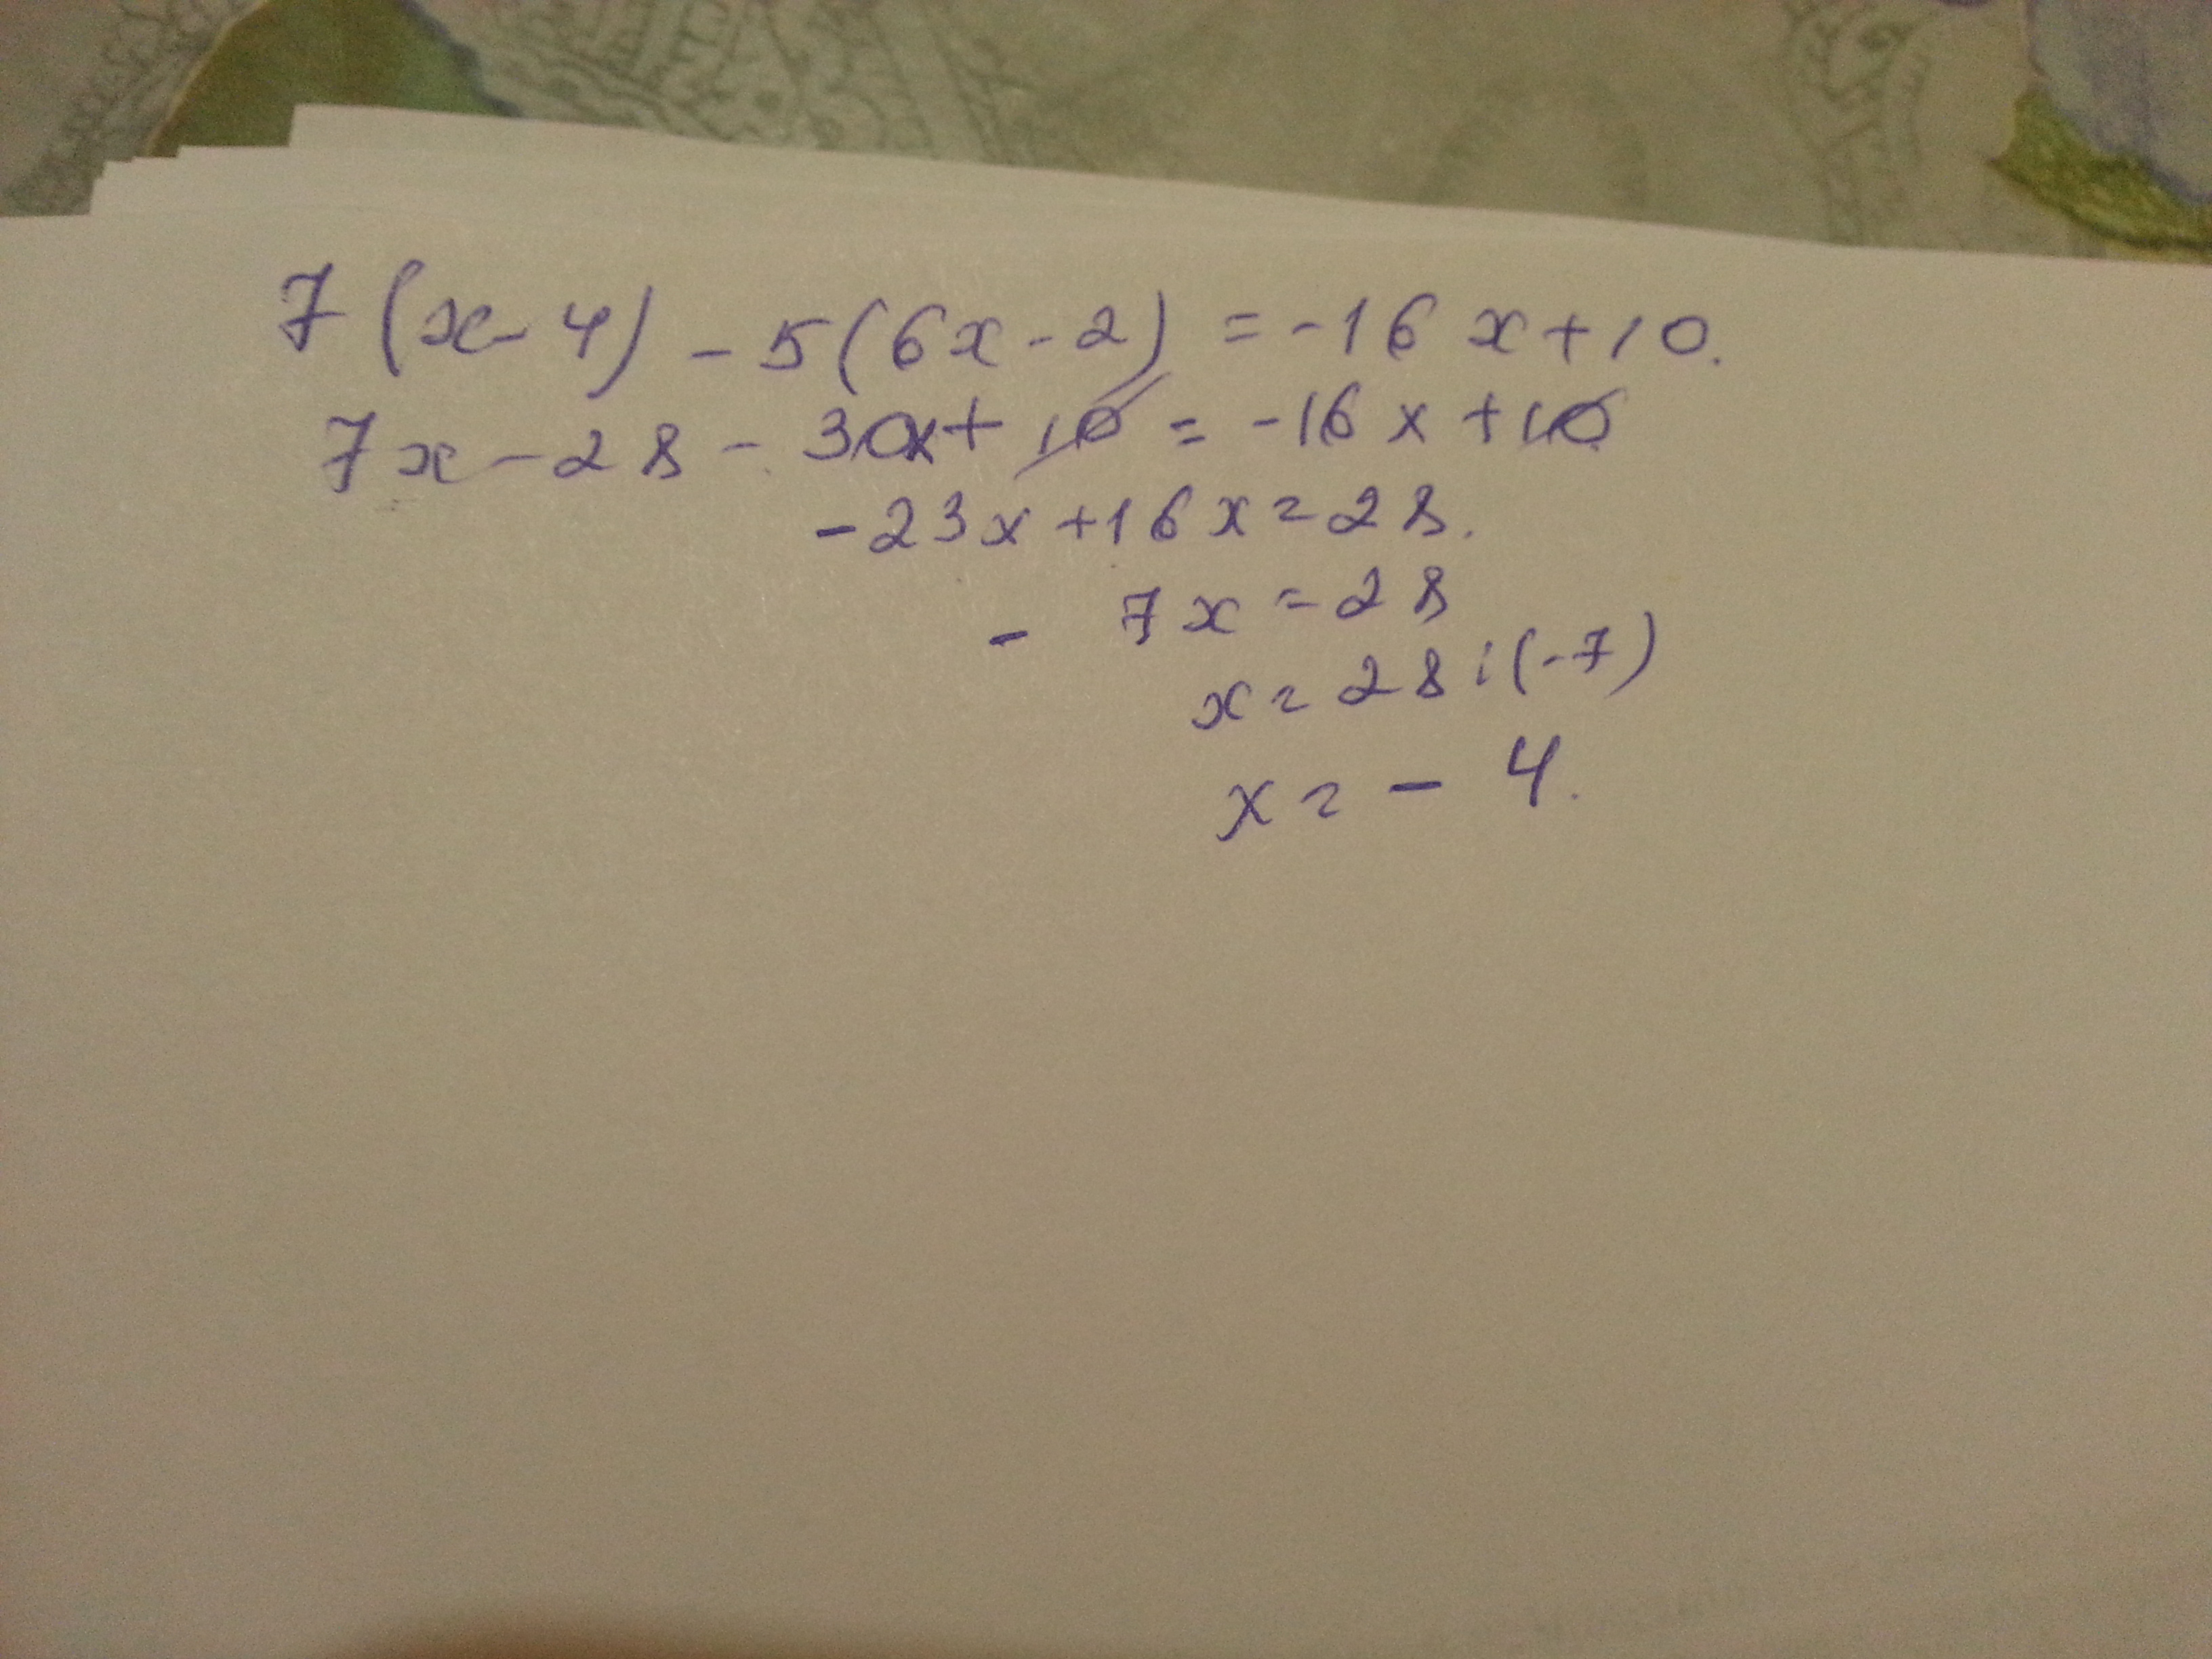 7(x-4) - 5(6x-2) = -16x+10.
7x-28 - 30x+10 = -16x+10
-23x+16x=28.
- 7x=28
x=28:(-7)
x= - 4.